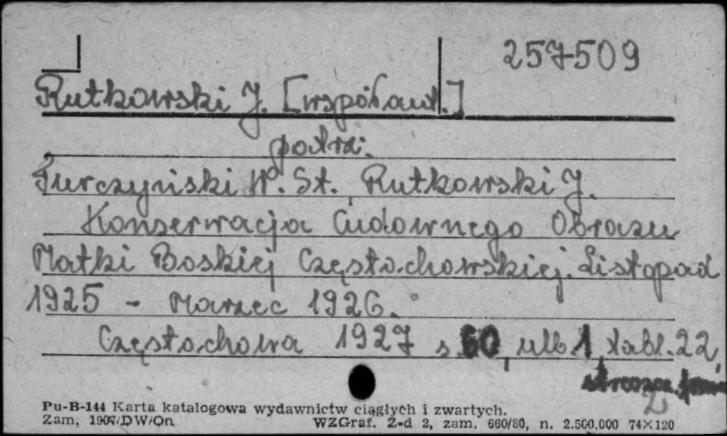 257509
Rutkowski J. [współaut.]
patrz:
Turczyński W. St., Rutkowski J.
Konserwacja Cudownego Obrazu
Matki Boskiej Częstochowskiej. Listopad
1925 - Marzec 1926.
Częstochowa 1927 s. 60, ulb. 1, tabl. 22,
streszcz.
Pu-B-144 Karta katalogowa wydawnictw ciągłych i zwartych.
Zam, 1907/DW/On WZGraf. Z-d 2, zam. 660/80, n. 2.500.000 74X120